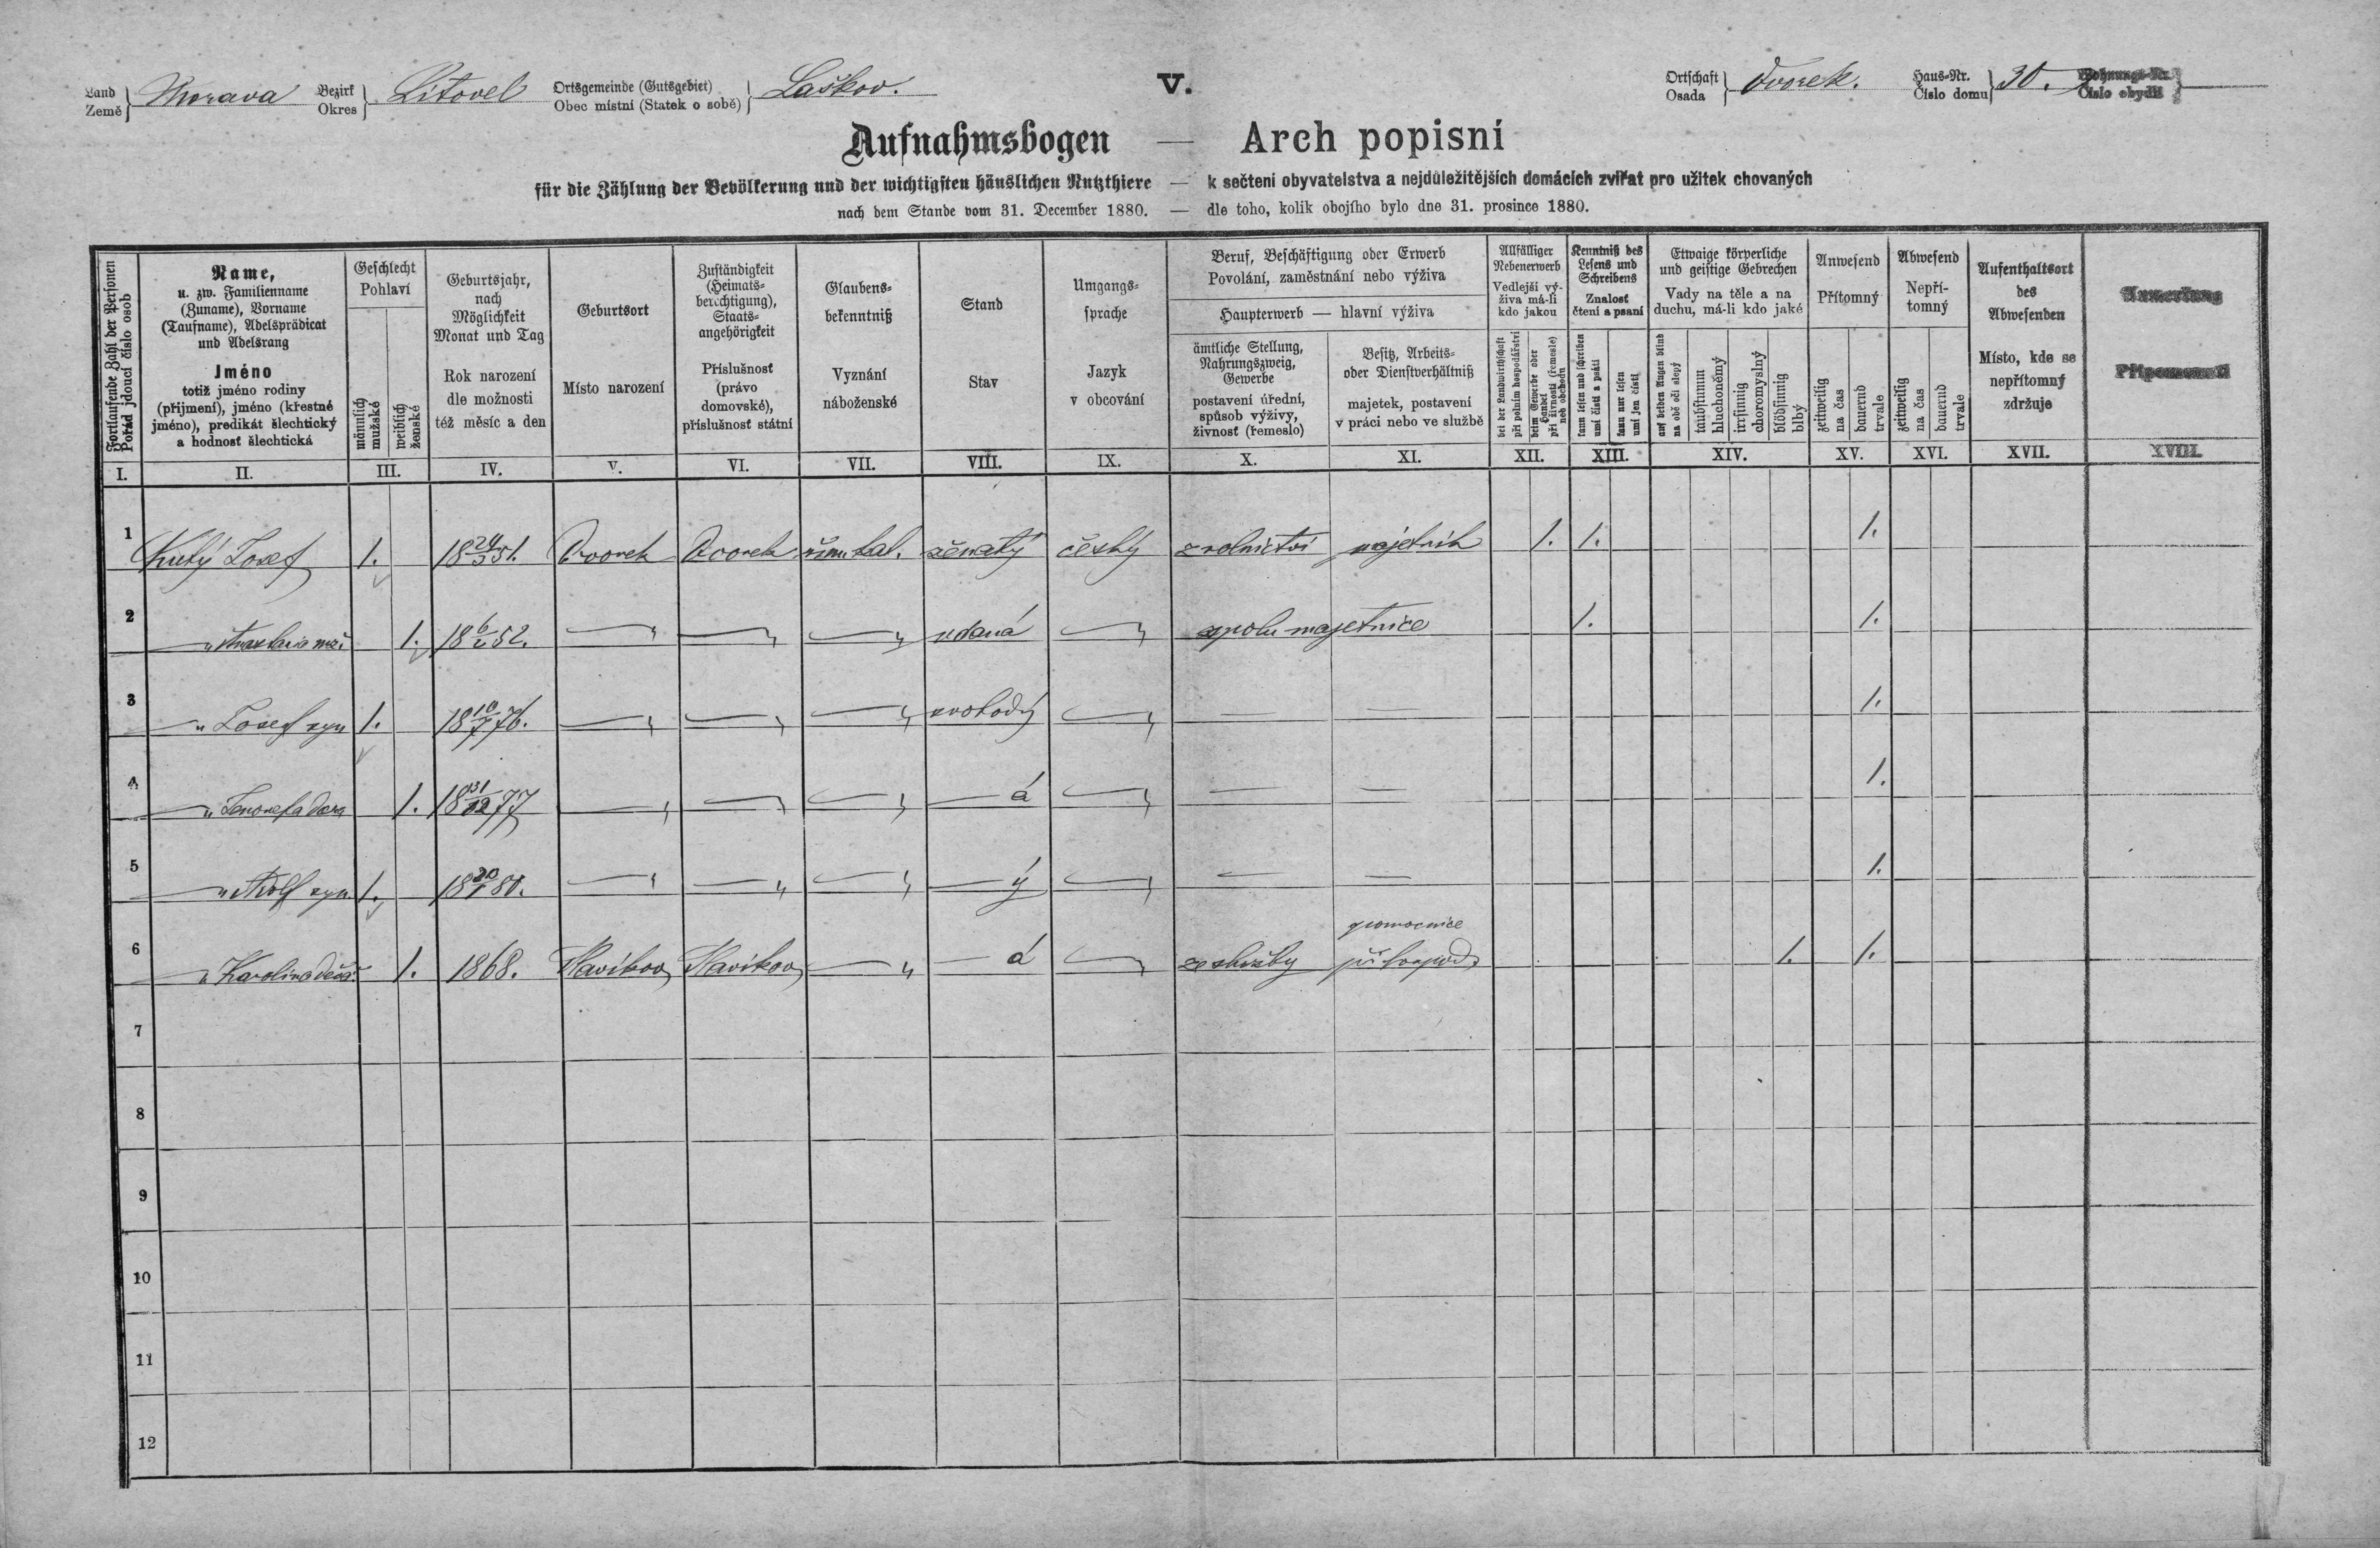 Land
Země
Morava
Bezirk
Okres
Litovel
Ortsgemeinde (Gutsgebiet)
Obec místní (Statek o sobě)
Laškov.
V.
Ortschaft
Osada
Dvorek.
Haus-Nr.
Číslo domu
30.
Wohnungs-Nr.
Číslo obydlí
Aufnahmsbogen — Arch popisní
für die Zählung der Bevölkerung und der wichtigsten häuslichen Nutzthiere — k sečtení obyvatelstva a nejdůležitějších domácích zvířat pro užitek chovaných
nach dem Stande vom 31. December 1880. — dle toho, kolik obojího bylo dne 31. prosince 1880.
Fortlaufende Zahl der Personen
Pořád jdoucí číslo osob
I.
Name,
u. zw. Familienname
(Zuname), Vorname
(Taufname), Adelsprädicat
und Adelsrang
Jméno
totiž jméno rodiny
(přijmení), jméno (křestné
jméno), predikát šlechtický
a hodnost šlechtická
II.
Geschlecht
Pohlaví
männlich
mužské
weiblich
ženské
III.
Geburtsjahr,
nach
Möglichkeit
Monat und Tag
Rok narození
dle možnosti
též měsíc a den
IV.
Geburtsort
Místo narození
V.
Zuständigkeit
(Heimats-
berechtigung),
Staats-
angehörigkeit
Příslušnost
(právo
domovské),
příslušnost státní
VI.
Glaubens-
bekenntniß
Vyznání
náboženské
VII.
Stand
Stav
VIII.
Umgangs-
sprache
Jazyk
v obcování
IX.
Beruf, Beschäftigung oder Erwerb
Povolání, zaměstnání nebo výživa
Haupterwerb — hlavní výživa
ämtliche Stellung,
Nahrungszweig,
Gewerbe
postavení úřední,
spůsob výživy,
živnost (řemeslo)
X.
Besitz, Arbeits-
oder Dienstverhältniß
majetek, postavení
v práci nebo ve službě
XI.
Allfälliger
Nebenerwerb
Vedlejší vý-
živa má-li
kdo jakou
bei der Landwirthschaft
při polním hospodářství
beim Gewerbe oder
Handel
při živnosti (řemesle)
neb obchodu
XII.
Kenntniß des
Lesens und
Schreibens
Znalost
čtení a psaní
kann lesen und schreiben
umí čísti a psáti
kann nur lesen
umí jen čísti
XIII.
Etwaige körperliche
und geistige Gebrechen
Vady na těle a na
duchu, má-li kdo jaké
auf beiden Augen blind
na obě oči slepý
taubstumm
hluchoněmý
irrsinnig
choromyslný
blödsinnig
blbý
XIV.
Anwesend
Přítomný
zeitweilig
na čas
dauernd
trvale
XV.
Abwesend
Nepří-
tomný
zeitweilig
na čas
dauernd
trvale
XVI.
Aufenthaltsort
des
Abwesenden
Místo, kde se
nepřítomný
zdržuje
XVII.
Anmerkung
Připomenutí
XVIII.
1 Kutý Josef 1. 18 24/3 51. Dvorek Dvorek řím. kat. ženatý český z rolnictví majetník 1. 1. 1.
2 — " 1. 18 6/2 52. — " — " — " vdaná — " spolu majetnice 1. 1.
3 — " Josef syn 1. 18 10/7 76. — " — " — " svobodý — " — — 1.
4 — " dcera 1. 18 31/12 77 — " — " — " — á — " — — 1.
5 — " Adolf syn. 1. 18 20/1 80. — " — " — " — ý — " — — 1.
pomocnice
6 — " Karolina 1. 1868. Slavíkov Slavíkov — " — á — " ze služby při hospod. 1. 1.
7
8
9
10
11
12